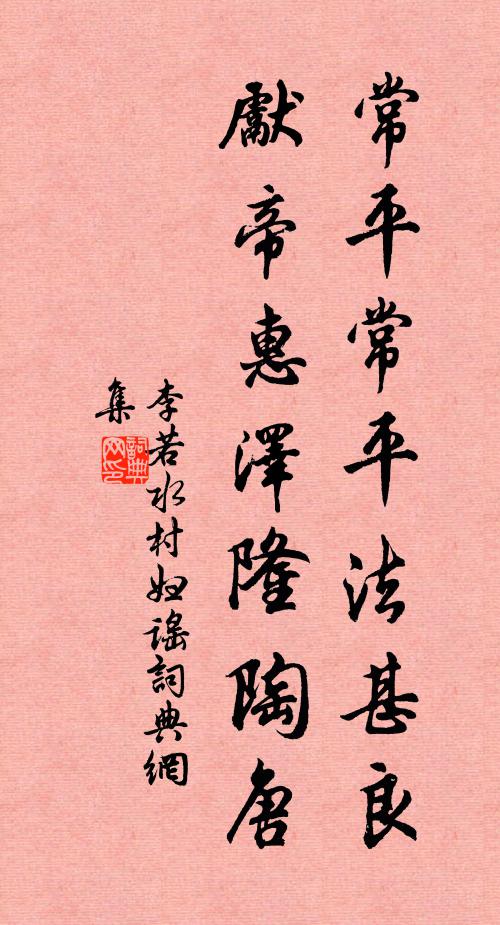 常平常平法甚良
獻帝惠澤隆陶唐
李若水村婦謠詞典網
集
詞典網印